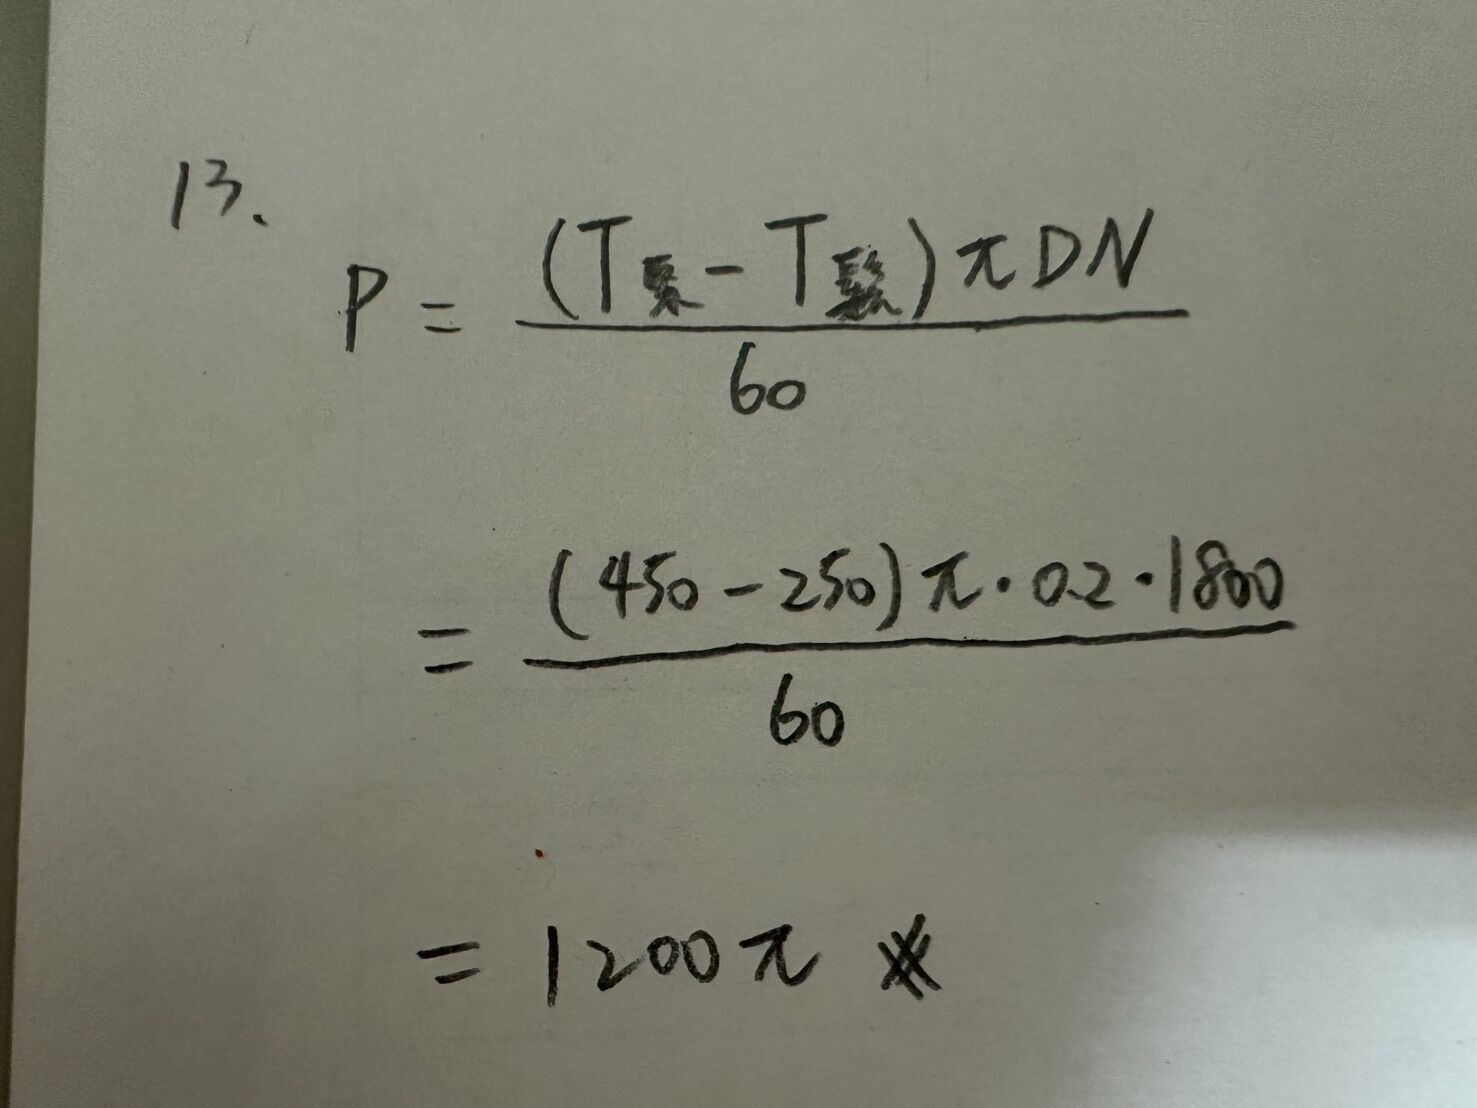 13.
P = (T緊 - T鬆) π D N
60
= (450 - 250) π · 0.2 · 1800
60
= 1200 π